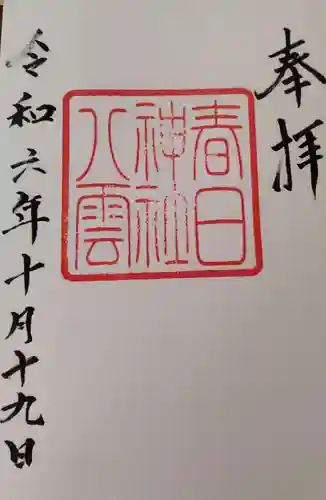 奉拝
春日
神社
八雲
令和六年十月十九日